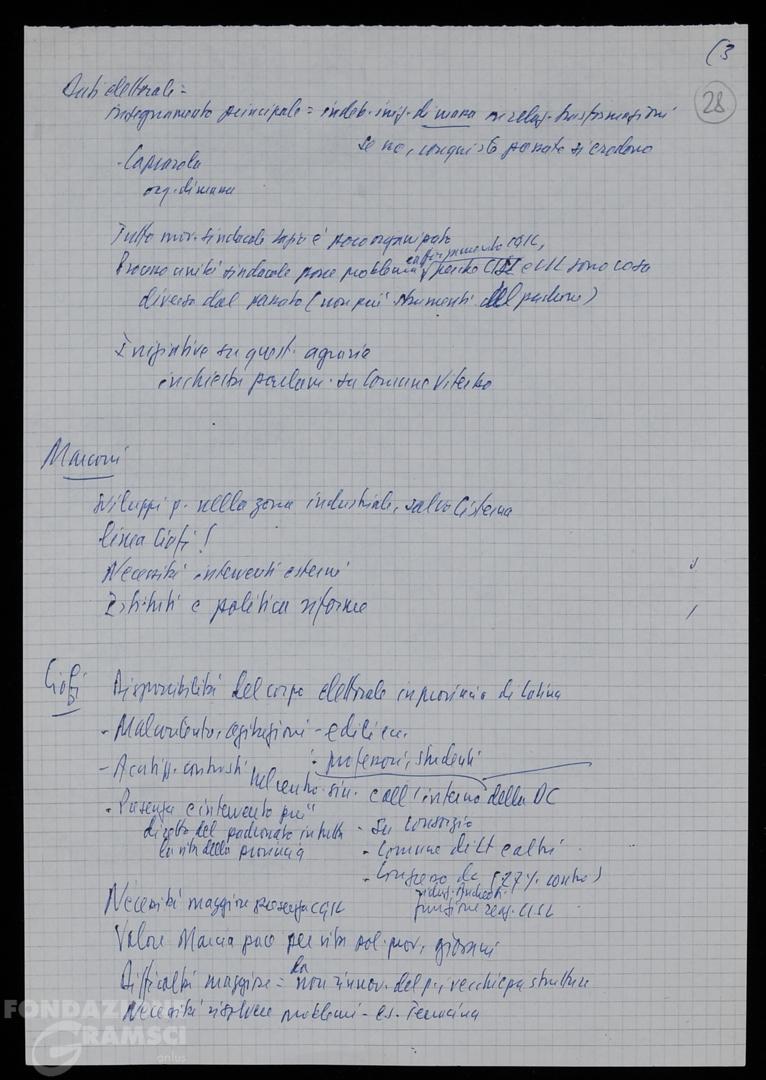 (3
28
Dati elettorali =
insegnamento principale = indeb. iniz. di massa trasformazioni
se no, conquiste passate si erodono
- Caprarola
org. di massa
Tutto mov. sindacale è poco organizzato
rafforzamento CGIL,
Processo unità sindacale pone problema perché CISL e UIL sono cosa
diversa dal passato (non più strumenti del padrone)
Iniziative su quest. agraria
inchiesta parlam. su Comune Viterbo
Marconi
Sviluppi p. nella zona industriale, salvo Cisterna
linea Ciofi!
Necessità interventi esterni
Istituti e politica riforme
Ciofi Disponibilità del corpo elettorale in provincia di Latina
- Malcontento, agitazioni - edili ecc.
: professori, studenti
- Acutizz. contrasti nel centro-sin. e all'interno della DC
- Presenza e intervento più
diretto del padronato in tutta - su consorzio
la vita della provincia - Comune di LT e altri
- Congresso dc (27% contro)
Necessità maggiore presenza CGIL
funzione CISL
Valore Marcia pace per vita pol. prov., giovani
Difficoltà maggiore = da non rinnov. del p., vecchie strutture
Necessità risolvere problemi - es. Terracina
FONDAZIONE
GRAMSCI
onlus